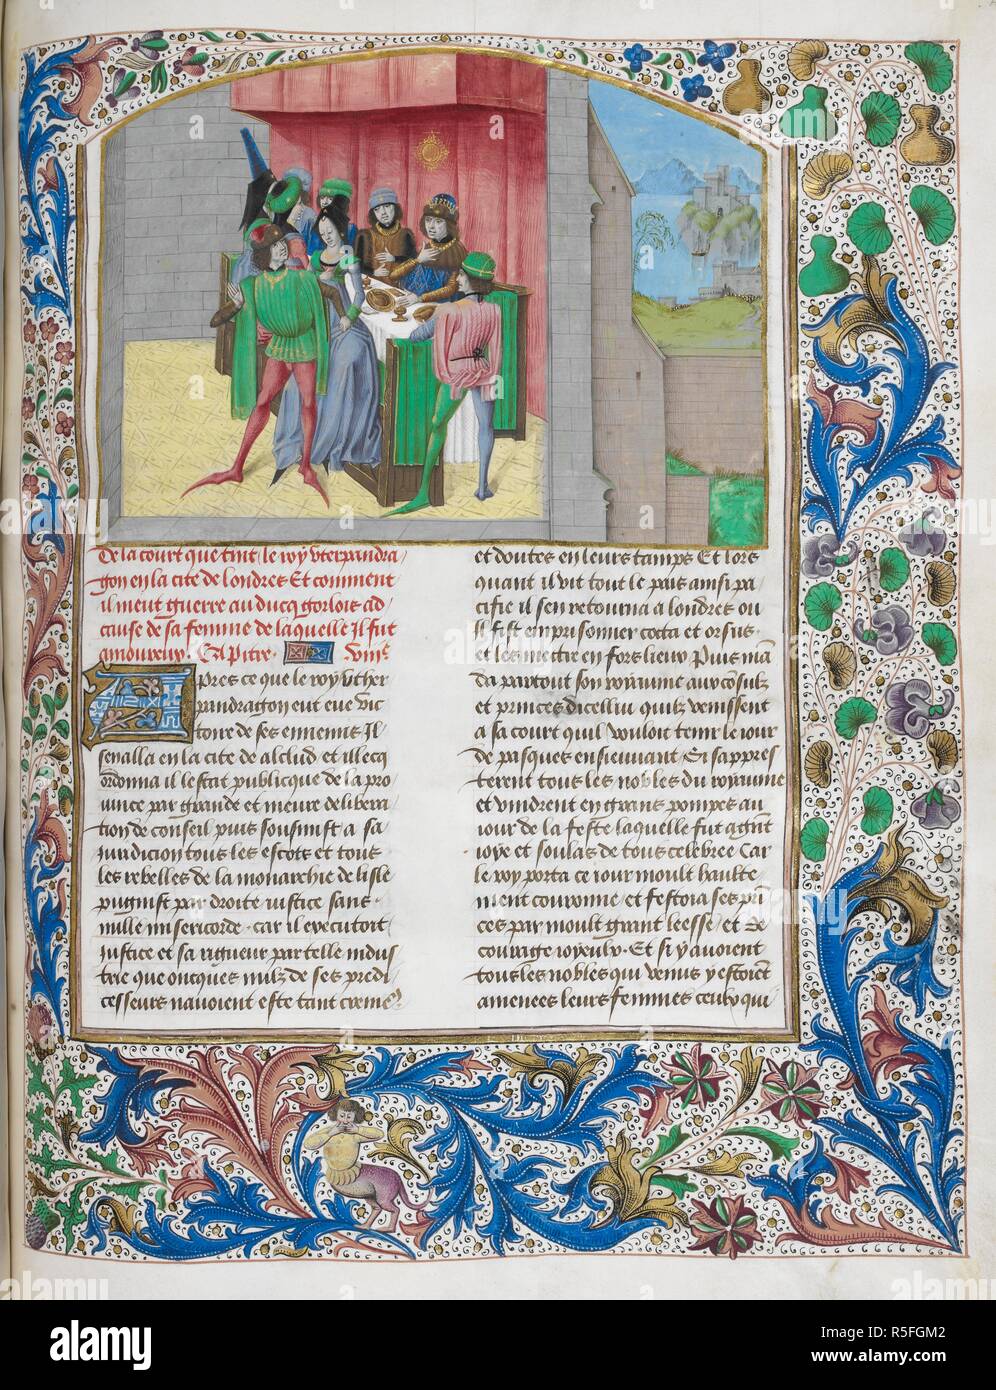 De la court que tint le roy vterpandra
gon en la cite de londres Et comment
il meut guerre au ducq gorlois ad
cause de sa femme de laquelle Il fut
amoureux. Capitre. viii.e
Apres ce que le roy vther
pandragon eut eue vic
toire de ses ennemis Il
sen alla en la cite de alclud et illecq
ordonna il lestat publicque de la pro
uince par grande et meure delibera
tion de conseil puis soufmist a sa
Juridicion tous les escots et tous
les rebelles de la monarchie de lisle
pugnist par droite iustice sans
mille misericorde. car il executort
Justice et sa rigueur par telle indus
trie que oncques nulz de ses prede
cesseurs nauoient este tant cremeз
et doutes en leurs tamps Et lors
quant il vit tout le pais ainsi pa
cifie il sen retourna a londres ou
il fist emprisonner cocta et orsus.
et les mectre en fors lieux Puis ma
da partout son royaume aux cosulz
et princes dicellui quilz venissent
a sa court quil vouloit tenir le iour
de pasques ensieuuant Et sappres
terent tous les nobles du royaume
et vindrent en grans pompes au
iour de la feste laquelle fut a grat
ioye et soulas de tous celebree Car
le roy porta ce iour moult haulte
ment couronne et festoia ses prin
ces par moult grant leesse. et de
courage ioyeulx. Et si y auoient
tous les nobles qui venus y estoiet
amenees leurs femmes ceulx qui
alamy
Image ID: R5FGM2
www.alamy.com